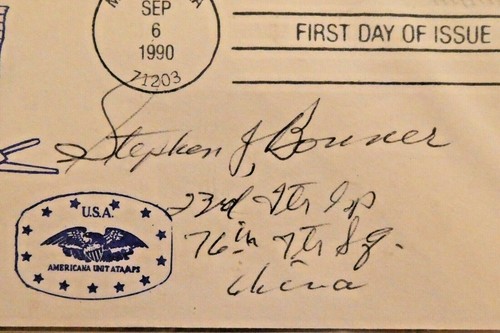 SEP
6
1990
71203
FIRST DAY OF ISSUE
Stephen J. Bonner
23rd Ftr Gp
76th Ftr Sq.
China
U.S.A.
AMERICANA UNIT ATA/APS